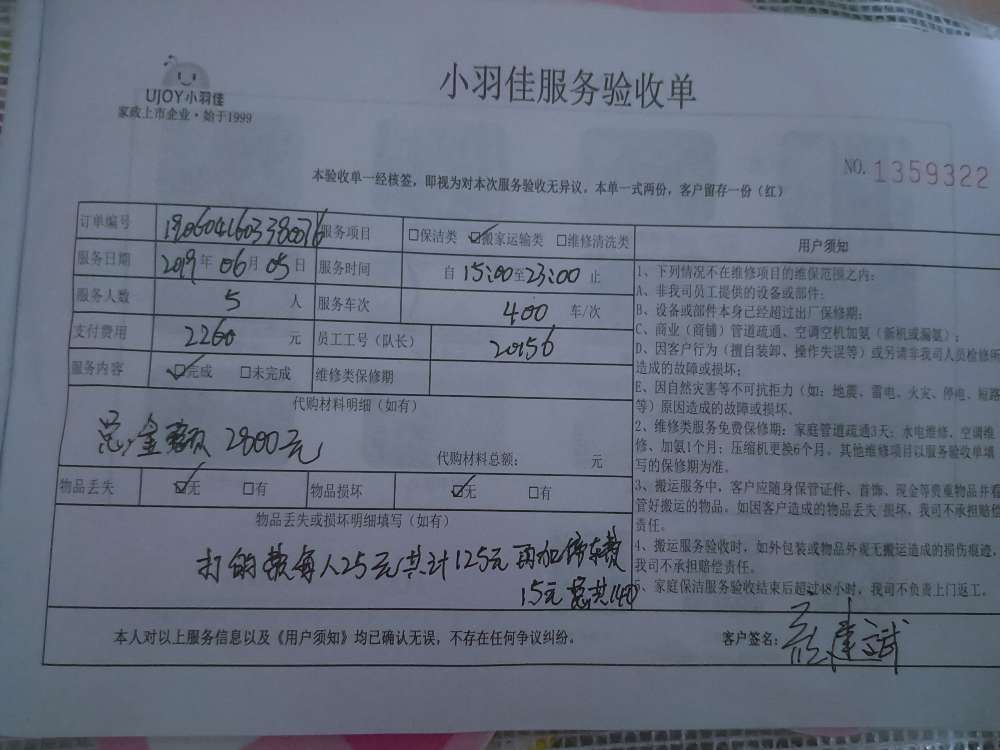 UJOY小羽佳
家政上市企业·始于1999
小羽佳服务验收单
NO. 1359322
本验收单一经核签，即视为对本次服务验收无异议。本单一式两份，客户留存一份（红）
订单编号 服务项目 □保洁类 ☑搬家运输类 □维修清洗类
服务日期 2019年06月05日 服务时间 自15:00至23:00止
服务人数 5 人 服务车次 400 车/次
支付费用 2260 元 员工工号（队长） 20156
服务内容 ☑完成 □未完成 维修类保修期
代购材料明细（如有）
总金额 2800元
代购材料总额： 元
物品丢失 ☑无 □有 物品损坏 ☑无 □有
物品丢失或损坏明细填写（如有）
打的费每人25元共计125元再加停车费
15元总共140
用户须知
1、下列情况不在维修项目的维保范围之内:
A、非我司员工提供的设备或部件;
B、设备或部件本身已经超过出厂保修期;
C、商业（商铺）管道疏通、空调空机加氨（新机或漏氨）;
D、因客户行为（擅自装卸、操作失误等）或另请非我司人员检修所
造成的故障或损坏;
E、因自然灾害等不可抗拒力（如: 地震、雷电、火灾、停电、短路
等）原因造成的故障或损坏.
2、维修类服务免费保修期: 家庭管道疏通3天; 水电维修、空调维
修、加氨1个月; 压缩机更换6个月。其他维修项目以服务验收单填
写的保修期为准。
3、搬运服务中，客户应随身保管证件、首饰、现金等贵重物品并看
管好搬运的物品。如因客户造成的物品丢失/损坏，我司不承担赔偿
责任。
4、搬运服务验收时，如外包装或物品外观无搬运造成的损伤痕迹，
我司不承担赔偿责任。
5、家庭保洁服务验收结束后超过48小时，我司不负责上门返工。
本人对以上服务信息以及《用户须知》均已确认无误，不存在任何争议纠纷。 客户签名: